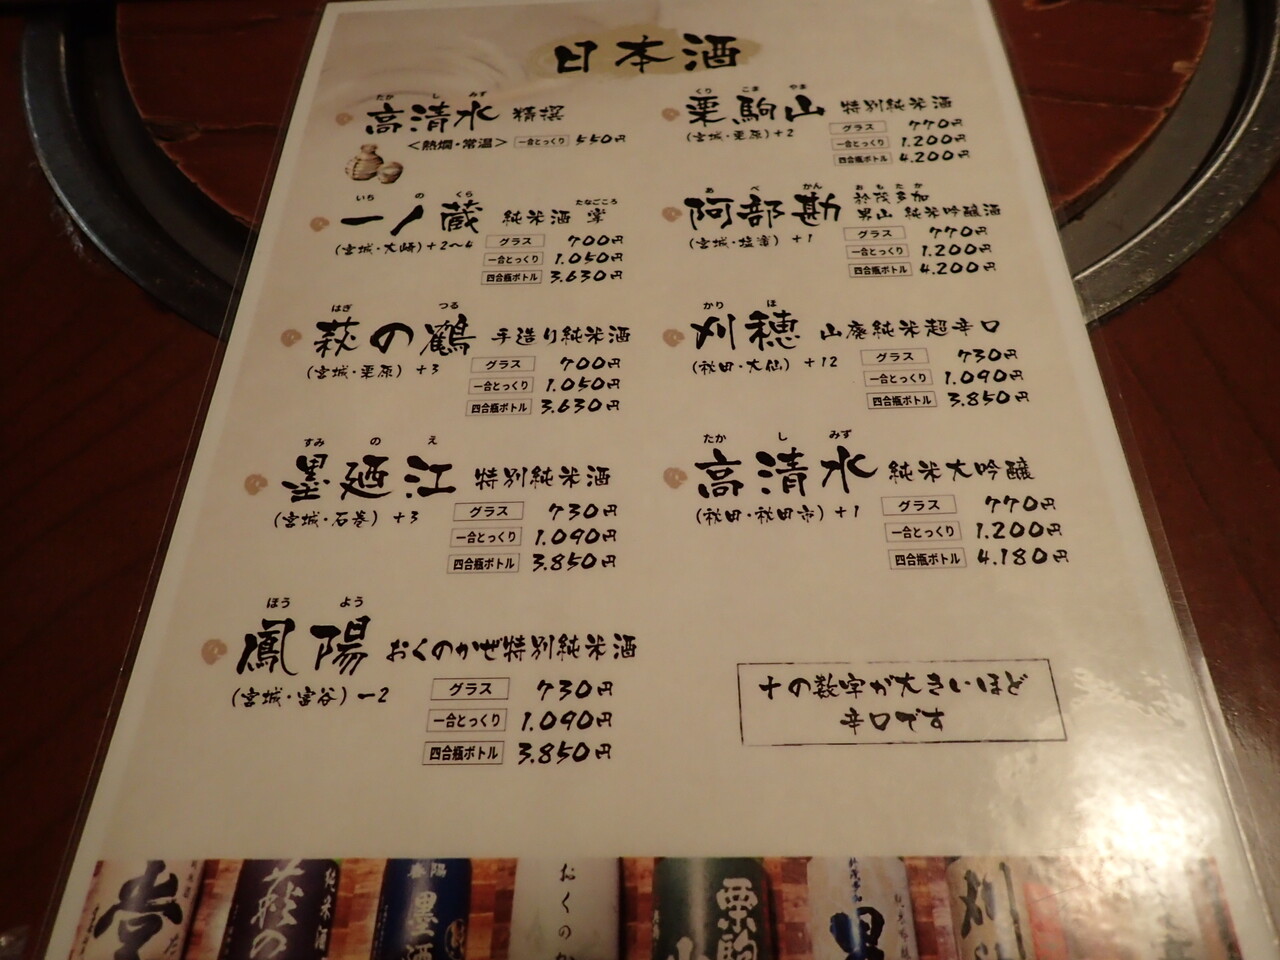 日本酒
たか し みず
高清水 精撰
<熱燗・常温> 一合とっくり 550円
いち の くら
一ノ蔵 純米酒 掌
たなごころ
(宮城・大崎)+2〜4
グラス 700円
一合とっくり 1.050円
四合瓶ボトル 3.630円
はぎ つる
萩の鶴 手造り純米酒
(宮城・栗原) +3
グラス 700円
一合とっくり 1.050円
四合瓶ボトル 3.630円
すみ の え
墨廼江 特別純米酒
(宮城・石巻) +3
グラス 730円
一合とっくり 1.090円
四合瓶ボトル 3.850円
ほう よう
鳳陽 おくのかぜ特別純米酒
(宮城・富谷) ー2
グラス 730円
一合とっくり 1.090円
四合瓶ボトル 3.850円
くり こま やま
栗駒山 特別純米酒
(宮城・栗原)+2
グラス 770円
一合とっくり 1.200円
四合瓶ボトル 4.200円
あ べ かん
阿部勘
おもたか
於茂多加
男山 純米吟醸酒
(宮城・塩釜) +1
グラス 770円
一合とっくり 1.200円
四合瓶ボトル 4.200円
かり ほ
刈穂 山廃純米超辛口
(秋田・大仙) +12
グラス 730円
一合とっくり 1.090円
四合瓶ボトル 3.850円
たか し みず
高清水 純米大吟醸
(秋田・秋田市) +1
グラス 770円
一合とっくり 1.200円
四合瓶ボトル 4.180円
+の数字が大きいほど
辛口です
萩の
純米酒
墨
おくのか
栗駒
刈